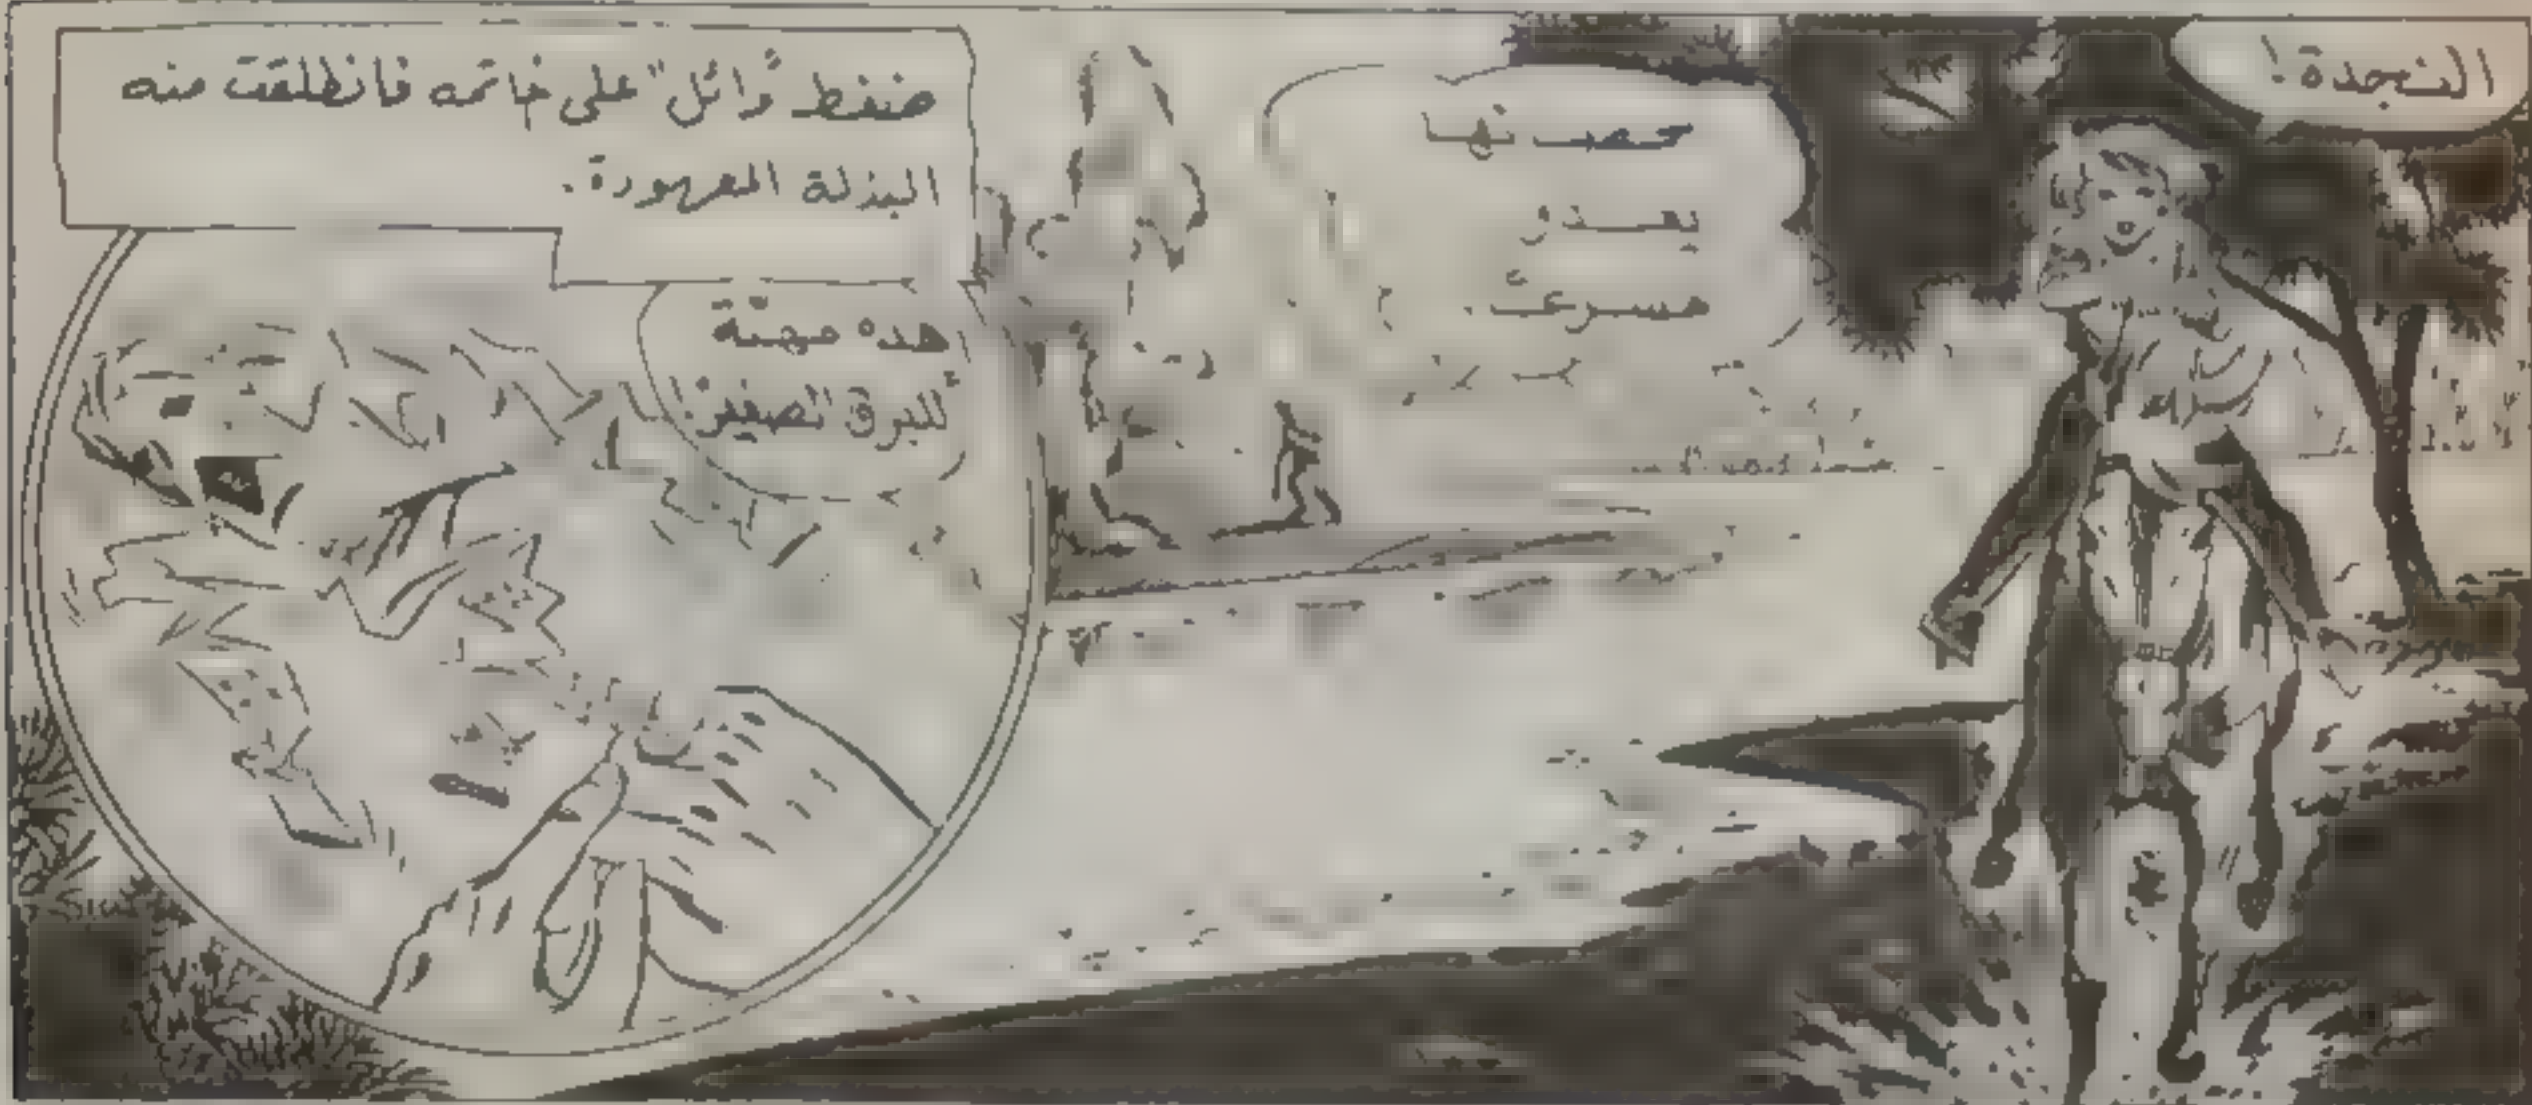 النجدة!
حصانها
يعدو
مسرعًا.
ضغط "وائل" على خاتمه فانطلقت منه
البذلة المعهودة.
هذه مهمّة
"للبرق الصغير"!